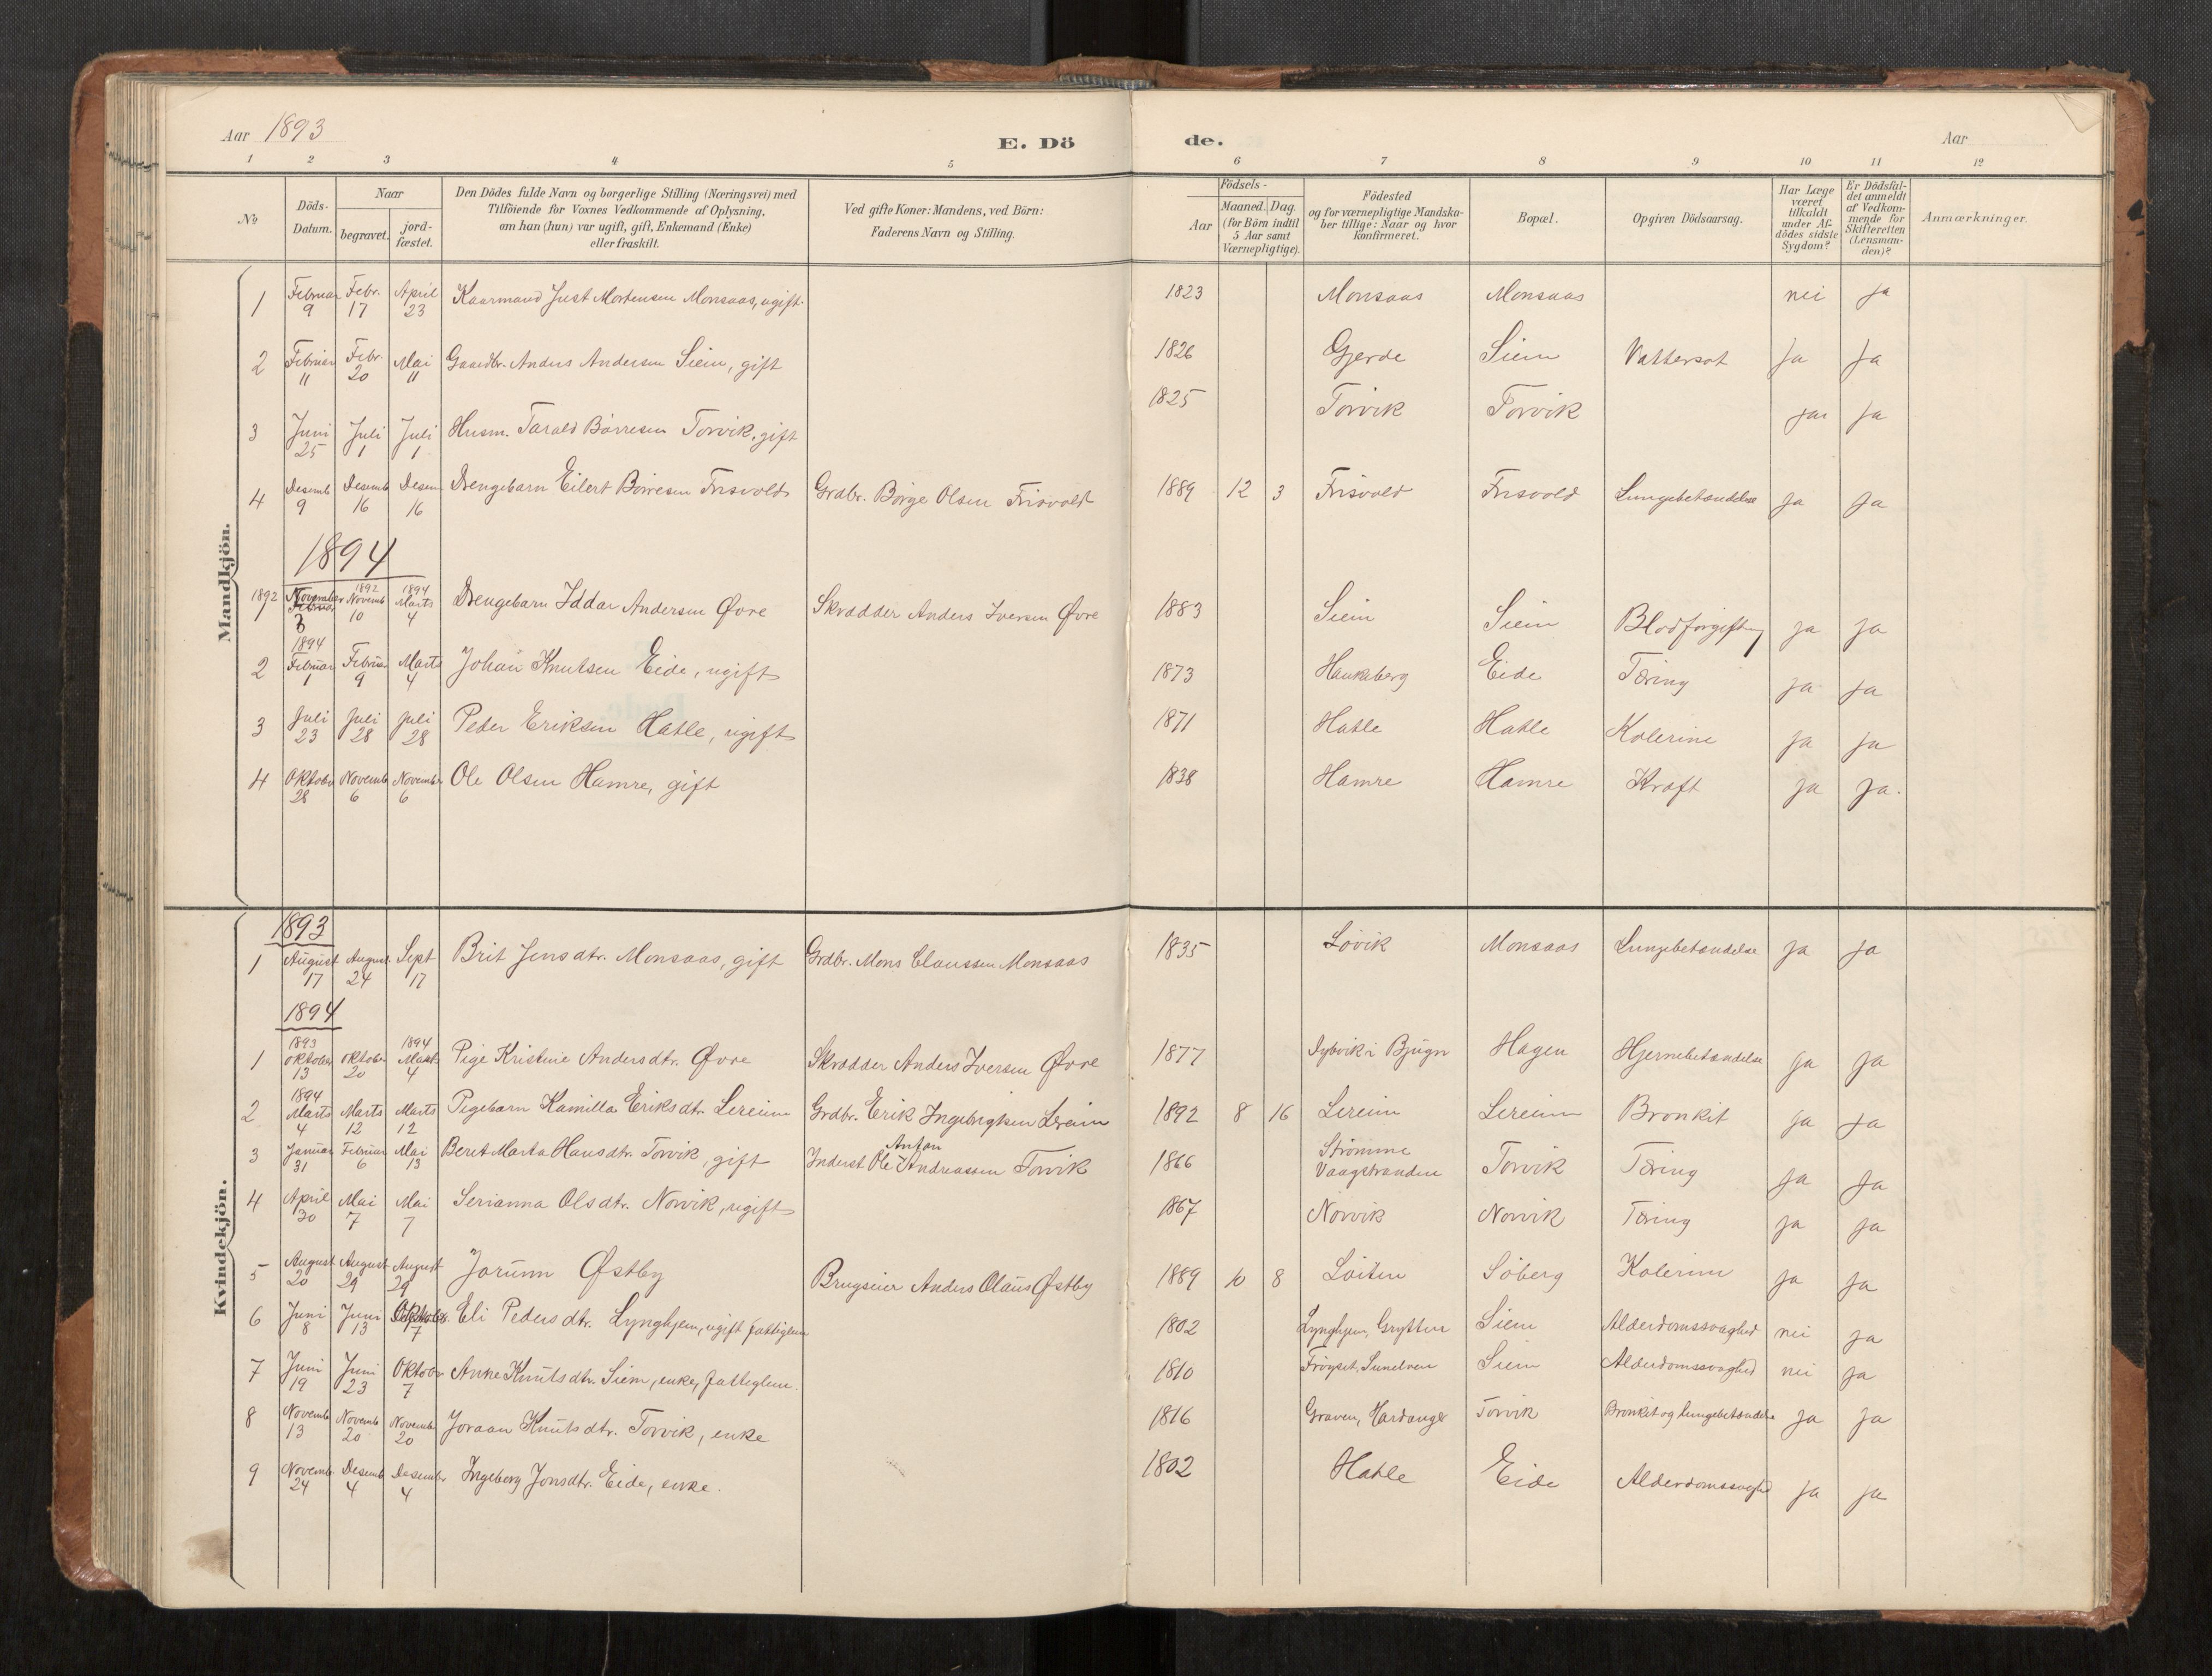 Aar 1893
E. Döde.
Aar
1 2 3 4 5 6 7 8 9 10 11 12
№
Döds-Datum.
Naar
begravet.
jordfæstet.
Den Dödes fulde Navn og borgerlige Stilling (Næringsvei) med
Tilföiende for Voxnes Vedkommende af Oplysning,
om han (hun) var ugift, gift, Enkemand (Enke)
eller fraskilt.
Ved gifte Koner: Mandens, ved Börn:
Faderens Navn og Stilling.
Födsels-
Aar
Maaned. Dag.
(for Börn indtil
5 Aar samt
Værnepligtige).
Födested
og for værnepligtige Mandska-
ber tillige: Naar og hvor
konfirmeret.
Bopæl.
Opgiven Dödsaarsag.
Har Læge
været
tilkaldt
under Af-
dödes sidste
Sygdom?
Er Dödsfal-
det anmeldt
af Vedkom-
mende for
Skifteretten
(Lensman-
den)?
Anmærkninger.
Mandkjön.
1 Februar 9 Febr. 17 April 23 Kaarmand Just Mortensen Monsaas, ugift. 1823 Monsaas Monsaas nei ja
2 Februar 11 Febr. 20 Mai 11 Gaardbr. Anders Andersen Siem, gift 1826 Gjerde Siem Vattersot Ja Ja
3 Juni 25 Juli 1 Juli 1 Husm. Tarald Börresen Torvik, gift 1825 Torvik Torvik ja Ja
4 Desemb 9 Desemb 16 Desem 16 Drengebarn Eilert Börresen Frisvold Grdbr. Börge Olsen Frisvold 1889 12 3 Frisvold Frisvold Lungebetændelse Ja Ja
1894
1892 1 November Februar 3 1892 Novemb 10 1894 Marts 4 Drengebarn Iddar Andersen Øvre Skrædder Anders Iversen Øvre 1883 Siem Siem Blodforgiftng ja ja
2 1894 Februar 1 Februar 9 Marts 4 Johan Knutsen Eide, ugift 1873 Haukaberg Eide Tæring ja ja
3 Juli 23 Juli 28 Juli 28 Peder Eriksen Hatle, ugift 1871 Hatle Hatle Kolerine ja ja
4 Oktober 28 Novemb 6 Novembr 6 Ole Olsen Hamre, gift 1838 Hamre Hamre Kræft ja ja.
Kvindekjön.
1893
1 August 17 August 24 Sept 17 Brit Jensdtr. Monsaas, gift Grdbr. Mons Claussen Monsaas 1835 Lövik Monsaas Lungebetændelse ja ja
1894
1 1893 Oktober 13 Oktober 20 1894 Marts 4 Pige Kristine Andersdtr. Øvre Skrædder Anders Iversen Øvre 1877 Dybvik i Bjugn Hagen Hjernebetændelse ja ja
2 1894 Marts 4 Marts 12 Marts 12 Pigebarn Kamilla Eriksdtr. Lereim Grdbr. Erik Ingebrigtsen Lereim 1892 8 16 Lereim Lereim Bronkit ja ja
3 Januar 31 Februar 6 Mai 13 Berit Marta Hansdtr. Torvik, gift Inderst Ole Anton Andreassen Torvik 1866 Strömme Vaagstranden Torvik Tæring ja Ja
4 April 30 Mai 7 Mai 7 Serianna Olsdtr. Norvik, ugift 1867 Norvik Norvik Tæring ja ja
5 August 20 August 29 August 29 Jorunn Østby Brugseier Anders Olaus Østby 1889 10 8 Löiten Söberg Kolerine ja ja
6 Juni 8 Juni 13 Oktober 7 Eli Pedersdtr. Lynghjem, ugift fattiglem 1802 Lynghjem, Grytten Siem Alderdomssvaghed nei ja
7 Juni 19 Juni 23 Oktobr 7 Anne Knutsdtr. Siem, enke, fattiglem. 1810 Fröyset, Sunelven Siem Alderdomssvaghed nei ja
8 Novemb 13 Novemb 20 Novemb 20 Joraan Knutsdtr. Torvik, enke 1816 Graven, Hardanger Torvik Bronkit og lungebetændelse ja ja
9 Novemb. 24 Desemb 4 Desembr 4 Ingeborg Jonsdtr. Eide, enke. 1802 Hatle Eide Alderdomssvaghed ja ja